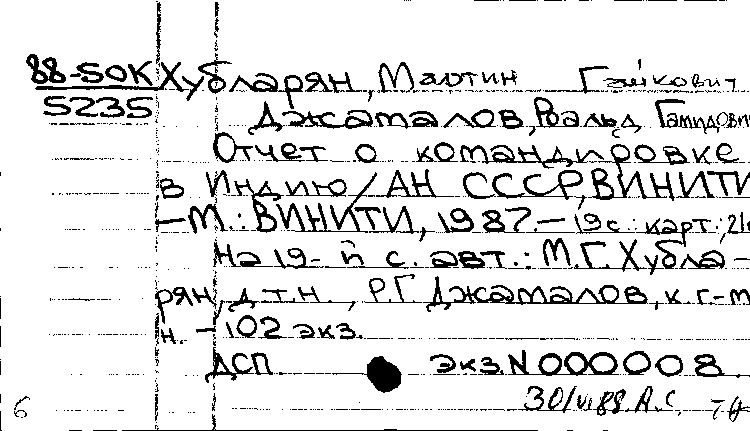 88-50К Хубларян, Мартин Гайкович
5235 Джамалов, Роальд Гамидови
Отчет о командировке
в Индию / АН СССР, ВИНИТИ
– М.: ВИНИТИ, 1987. – 19 с.: карт.; 21
На 19-й с. авт.: М.Г. Хубла-
рян, д.т.н., Р.Г. Джамалов, к.г.-м
н. – 102 экз.
ДСП. Экз. N 000008.
30/VI 88. А.С.
6